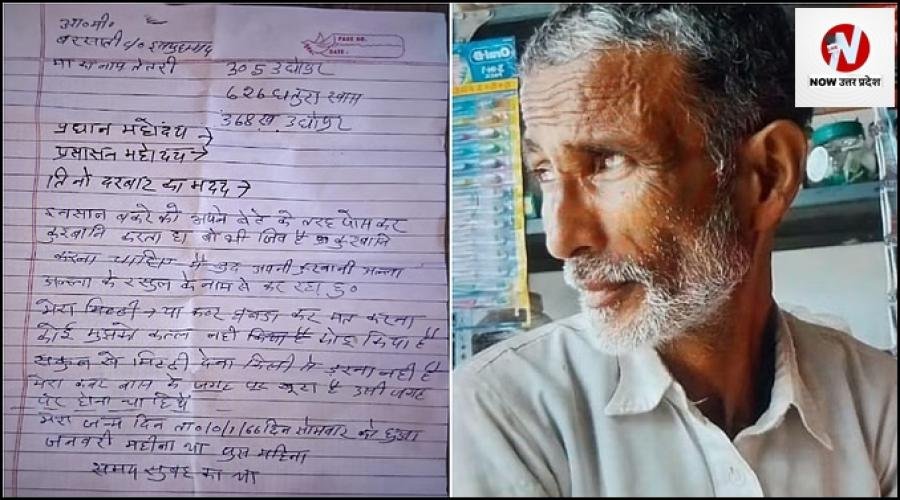 आ० मी०
PAGE NO.
DATE
मा का नाम तेतरी
305 उद्योपुर
626 धतुरा स्वाम
368 ख उद्योपुर
प्रधान महोदय →
प्रसासन महोदय →
तिनो दरबार का मदद →
इनसान बकरे को अपने बेटे के तरह पोस कर
कुरबानि करता है वो भी जिव है कुरबानि
करना चाहिए मै खुद अपनी कुरबानी
अल्ला के रसुल के नाम से कर रहा हु०
मेरा मिट्टी → या कबर घबड़ा कर मत करना
कोई मुझको कत्ल नही किया है
सकुन से मिट्टी देना किसी से डरना नही है
मेरा कबर बास के जगह पर खुटा है उसी जगह
पर होना चाहिये
मेरा जन्म दिन ता० 10/1/66 दिन सोमवार को हुआ
जनवरी महीना था पुस महिना
समय सुबह का था
Oral-B
PACK
N
NOW उत्तर प्रदेश